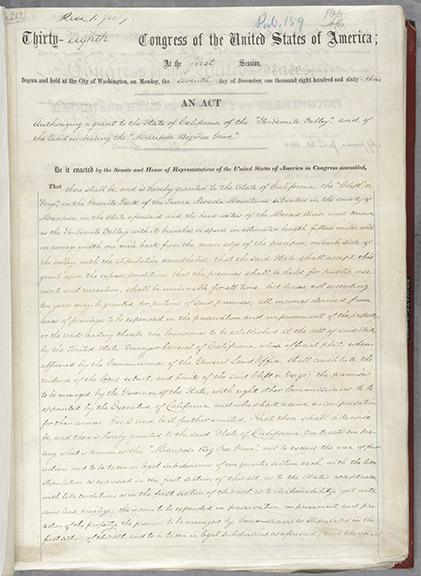 Pub. 159
Thirty-eighth Congress of the United States of America;
At the first Session,
Begun and held at the City of Washington, on Monday, the seventh day of December, one thousand eight hundred and sixty-three
AN ACT
Authorizing a grant to the State of California of the "Yo-Semite Valley" and of
the land embracing the "Mariposa Big Tree Grove."
Be it enacted by the Senate and House of Representatives of the United States of America in Congress assembled,
That there shall be, and is hereby granted to the State of California the "Cleft" or
"Gorge" in the Granite Peak of the Sierra Nevada Mountains situated in the county of
Mariposa, in the State aforesaid and the head waters of the Merced River and known
as the Yo-Semite Valley, with its branches or spurs in estimated length fifteen miles and
in average width one mile back from the main edge of the precipice, on each side of
the valley, with the stipulation nevertheless, that the said State shall accept this
grant upon the express conditions that the premises shall be held for public use
resort and recreation, shall be inalienable for all time, but leases not exceeding
ten years may be granted for portions of said premises; all incomes derived from
leases of privileges to be expended in the preservation and improvement of the property
or the roads leading thereto, the boundaries to be established at the cost of said State
by the United States Surveyor General of California, whose official plat, when
affirmed by the Commissioner of the General Land Office, shall constitute the
evidence of the locus, extent, and limits of the said Cleft or Gorge; the premises
to be managed by the Governor of the State, with eight other Commissioners to be
appointed by the Executive of California and who shall receive no compensation
for their services. Sec. 2 And be it further enacted, That there shall likewise
be, and there is hereby granted to the said State of California the tracts em-
bracing what is known as the "Mariposa Big Tree Grove," not to exceed the area of four
sections and to be taken in legal subdivisions of one quarter section each with the like
stipulation as expressed in the first section of this act, as to the State's acceptance
with like conditions as in the first section of this act as to inalienability, yet with
same lease privilege; the income to be expended in preservation, improvement, and pro-
tection of the property; the premises to be managed by Commissioners as stipulated in the
first section of this act, and to be taken in legal subdivisions as aforesaid; and the official